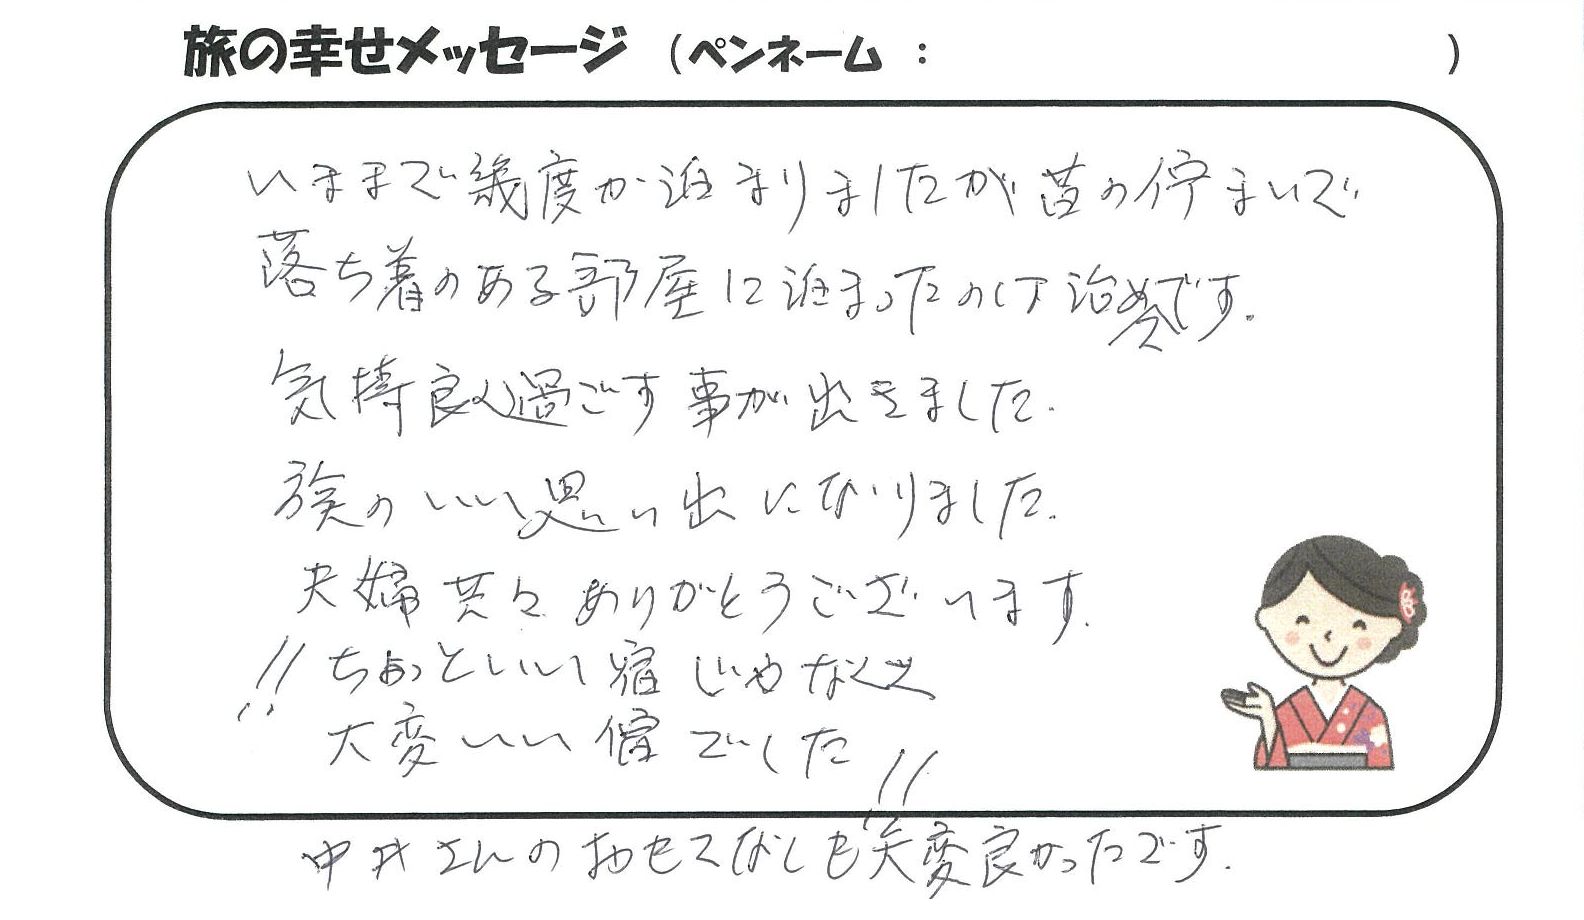 旅の幸せメッセージ (ペンネーム : )
いままで幾度か泊まりましたが昔の佇まいで
落ち着のある部屋に泊まったのは初めてです.
気持良く過ごす事が出きました.
旅のいい思い出になりました.
夫婦共々ありがとうございます.
!! ちょっといい宿じゃなくて
大変いい宿でした!!
中井さんのおもてなしも大変良かったです.